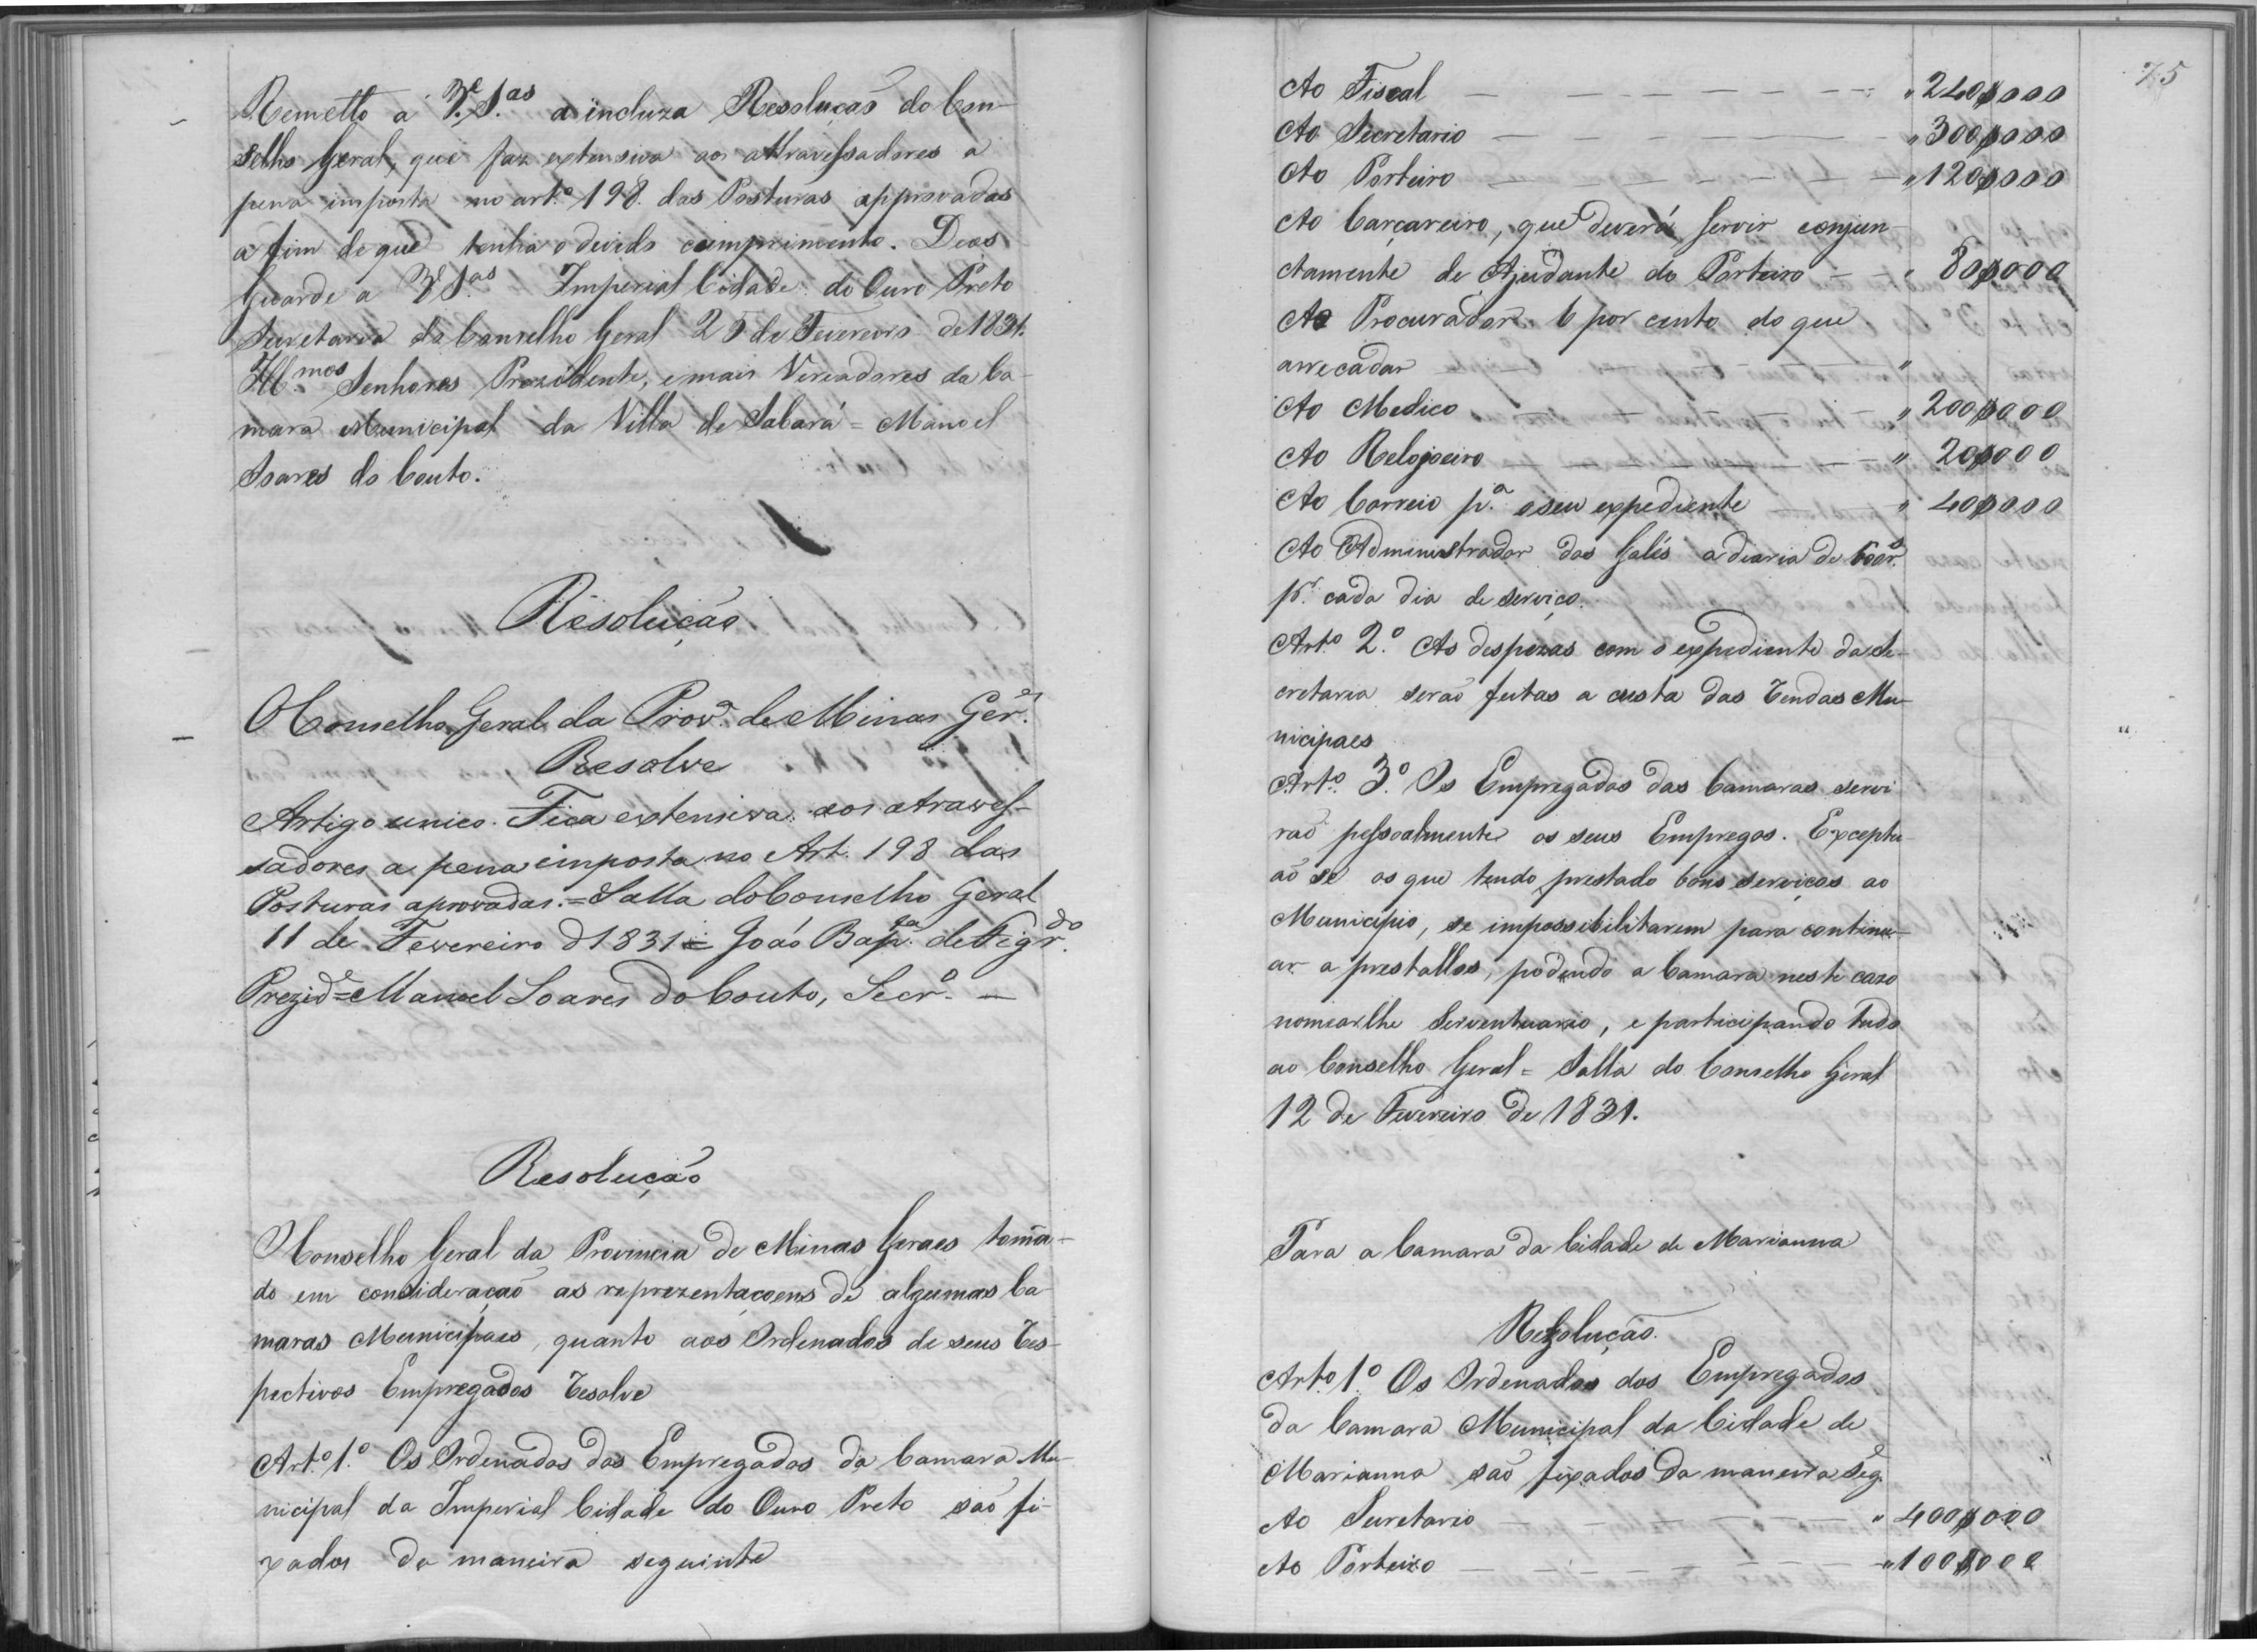 Remetto a V.es S.as a incluza Resolução do Con-
selho Geral, que faz extensiva aos attravessadores a
pena imposta no art.o 198. das Posturas approvadas
a fim de que tenha o devido comprimento. Deos
Guarde a V.es S.as Imperial Cidade do Ouro Preto
Secretaria do Conselho Geral 25 de Fevereiro de 1831.
Ill.mos Senhores Prezidente, e mais Vereadores da Ca-
mara Municipal da Villa de Sabará = Manoel
Soares do Couto.
Resolução
O Conselho Geral da Prov.a de Minas Ger.es
Resolve
Artigo unico. Fica extensiva aos atraves-
sadores a pena imposta no Art. 198 das
Posturas aprovadas. = Salla do Conselho Geral
11 de Fevereiro d 1831 = João Bap.ta de Figr.do
Prezid.e = Manoel Soares do Couto, Secr.o —
Resolução
O Conselho Geral da Provincia de Minas Geraes toman-
do em consideração as reprezentaçoens de algumas Ca-
maras Municipaes, quanto aos Ordenados de seus Res-
pectivos Empregados Resolve
Art.o 1.o Os Ordenados dos Empregados da Camara Mu-
nicipal da Imperial Cidade do Ouro Preto são fi-
xados da maneira seguinte
75
Ao Fiscal — " 240$000
Ao Secretario — " 300$000
Ao Porteiro — " 120$000
Ao Carcareiro, que deverá servir conjun-
ctamente de Ajudante do Porteiro — " 80$000
Ao Procurador 6 por cento do que
arrecadar "
Ao Medico — " 200$000
Ao Relojoeiro — " 20$000
Ao Correio p.a o seu expediente " 40$000
Ao Administrador dos Galés a diaria de 600r.s
p.r cada dia de serviço.
Art.o 2.o As despezas com o expediente da Se-
cretaria serão feitas a custa das Rendas Mu-
nicipaes
Art.o 3.o Os Empregados das Camaras servi
rão pessoalmente os seus Empregos. Exceptu-
ão se os que tendo prestado bons serviços ao
Municipio, se impossibilitarem para continu-
ar a prestallos, podendo a Camara neste cazo
nomearlhe Serventuario, e participando tudo
ao Conselho Geral = Salla do Conselho Geral
12 de Fevereiro de 1831.
Para a Camara da Cidade de Marianna
Rezolução.
Art.o 1.o Os Ordenados dos Empregados
da Camara Municipal da Cidade de
Marianna são fixados da maneira seg.e
Ao Secretario — " 400$000
Ao Porteiro — " 100$000